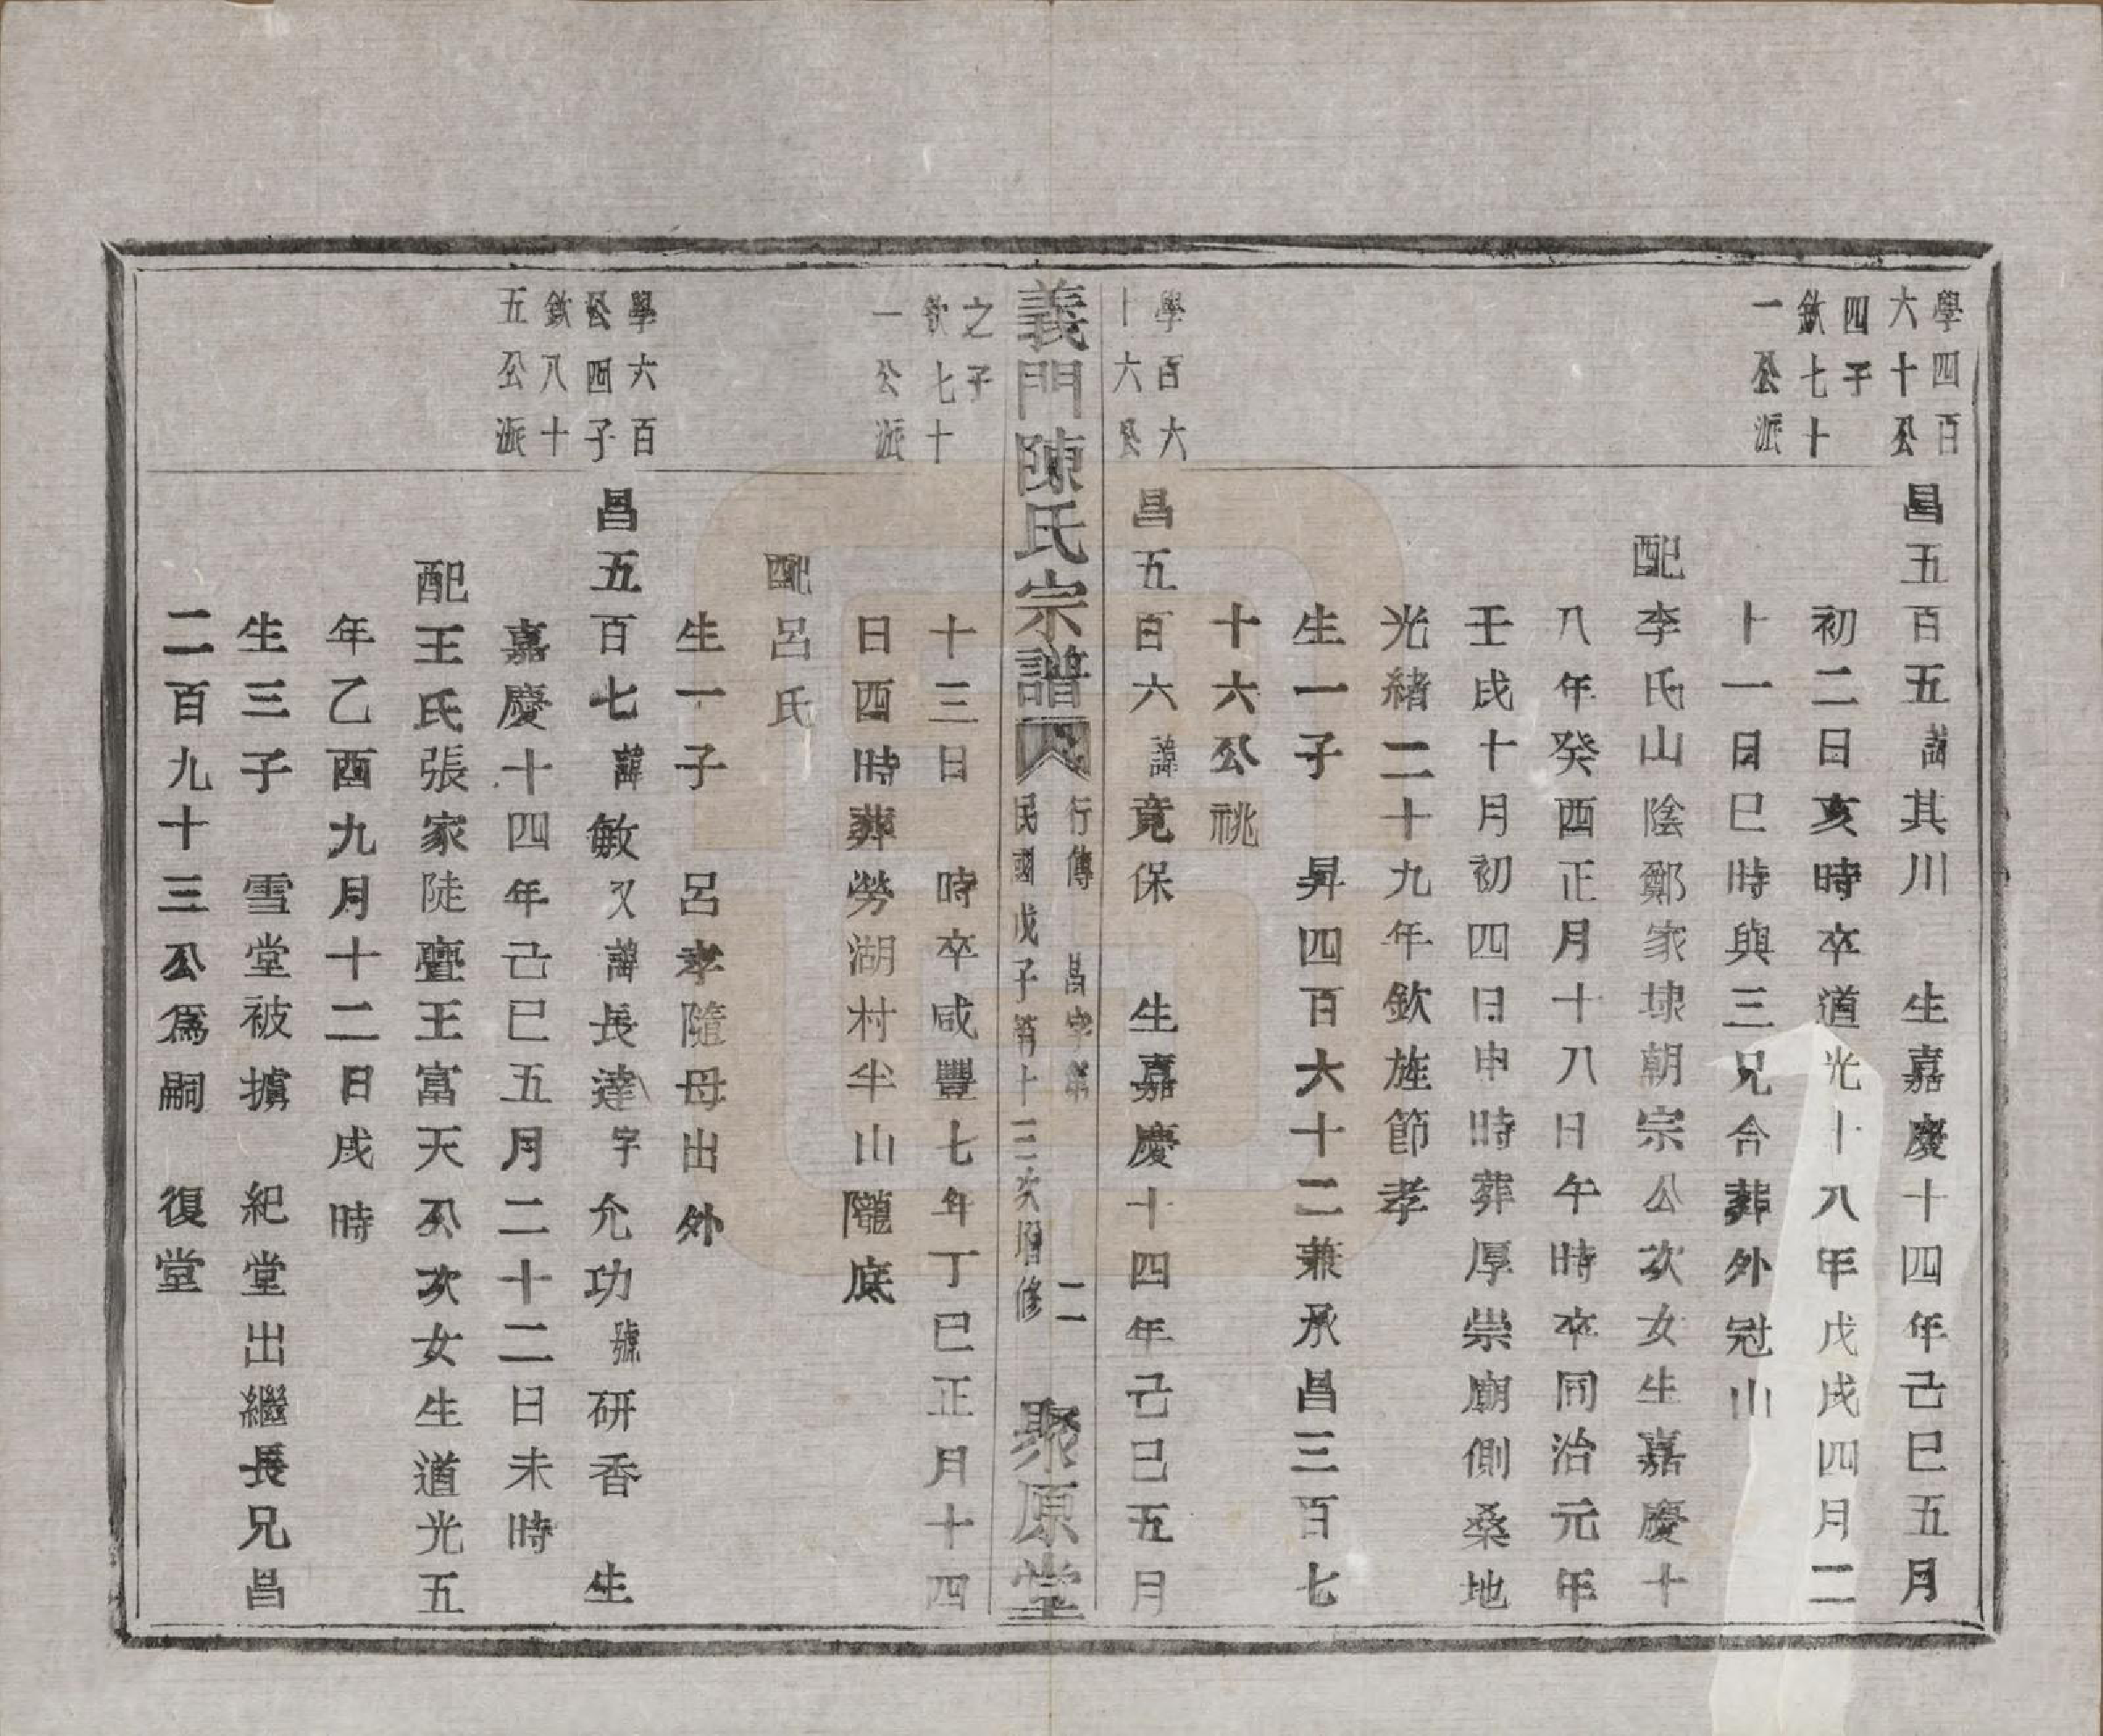 學四百
六十公
四子
欽七十
一公派
昌五百五諱其川　生嘉慶十四年己巳五月
初二日亥時卒道光十八年戊戌四月二
十一日巳時與三兄合葬外冠山
配李氏山陰鄭家埭朝宗公次女生嘉慶十
八年癸酉正月十八日午時卒同治元年
壬戌十月初四日申時葬厚崇廟側桑地
光緒二十九年欽旌節孝
生一子　昇四百六十二兼承昌三百七
十六公祧
學百六
十六公
昌五百六諱竟保　生嘉慶十四年己巳五月
義門陳氏宗譜
行傳　昌字弟　二
民國戊子第十三次增修
聚原堂
之子
欽七十
一公派
十三日　時卒咸豐七年丁巳正月十四
日酉時葬勞湖村半山隴底
配呂氏
生一子　呂孝隨母出外
學六百
松四子
欽八十
五公派
昌五百七諱敏又諱長達字允功號研香　生
嘉慶十四年己巳五月二十二日未時
配王氏張家陡亹王富天公次女生道光五
年乙酉九月十二日戌時
生三子　雪堂被擄　紀堂出繼長兄昌
二百九十三公爲嗣　復堂